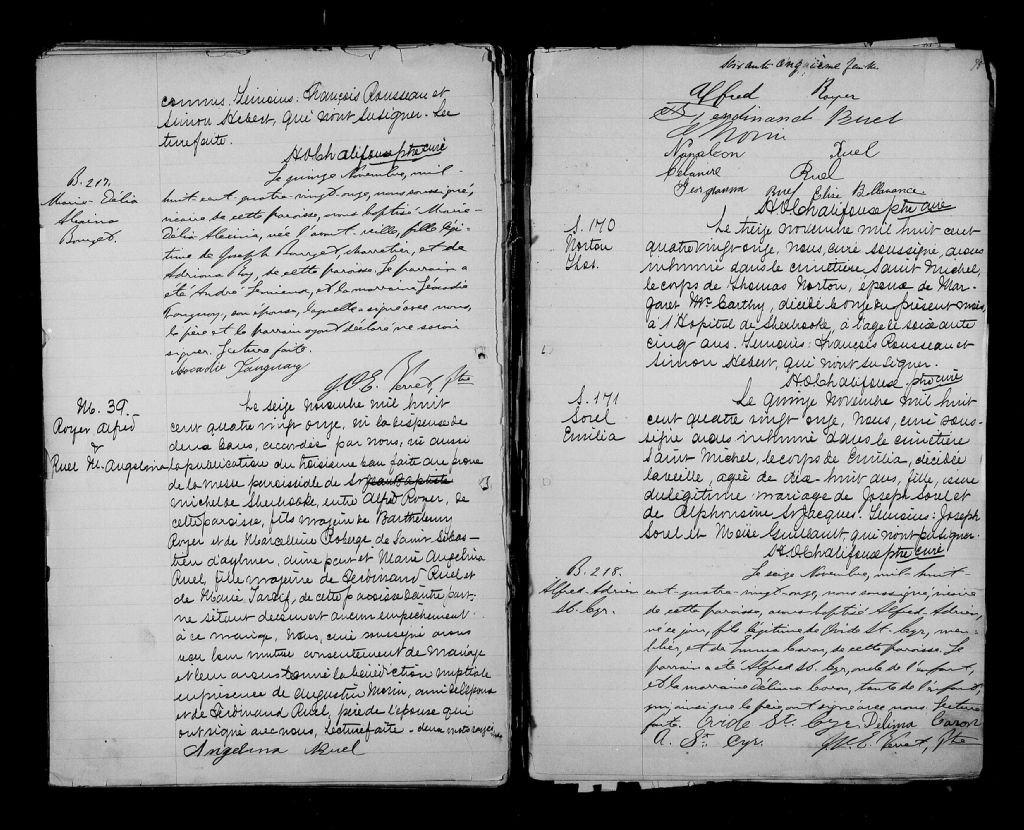 connus. Témoins: François Rousseau et
Simon Hébert, qui n'ont su signer. Lec
ture faite.
H O Chalifoux ptre curé
B. 217.
Marie-Délia
Alexina
Le quinze Novembre, mil-
huit-cent-quatre-vingt-onze, nous soussigné,
vicaire de cette paroisse, avons baptisé Marie-
Délia Alexina, née l'avant-veille, fille légi-
time de Joseph, charretier, et de
Roy, de cette paroisse. Le parrain a
été André Lemieux, et la marraine Léocadie
Tanguay, son épouse, laquelle a signé avec nous,
le père et le parrain ayant déclaré ne savoir
signer. Lecture faite.
Léocadie Tanguay
J O E. Verret, Ptre
M. 39.
Royer Alfred
&
Ruel M. Angelina
Le seize novembre mil huit
cent quatre vingt onze, vu la dispense de
deux bans, accordée par nous, vu aussi
la publication du troisième ban faite au prone
de la messe paroissiale de St Jean Baptiste
michel de Sherbrooke, entre Alfred Royer, de
cette paroisse, fils majeur de Barthelemy
Royer et de Marcelline Roberge de Saint Sébas-
tien d'aylmer, d'une part et Marie Angelina
Ruel, fille majeure de Ferdinand Ruel et
de Marie Tardif, de cette paroisse d'autre part;
ne s'étant découvert aucun empêchement
à ce mariage, Nous, curé soussigné avons
reçu leur mutuel consentement de mariage
et leur avons donné la bénédiction nuptiale
en présence de Augustin Morin, ami de l'époux
et de Ferdinand Ruel, père de l'épouse qui
ont signé avec nous, Lecture faite - deux mots rayés
Angelina Ruel
soixante onzième feuille
Alfred Royer
Ferdinand Ruel
Morin
Napoléon Ruel
Ruel
Georgianna Ruel Elise Bellavance
H O Chalifoux ptre curé
S. 170
Norton
Thos.
Le treize novembre mil huit cent
quatre vingt onze, nous, curé soussigné, avons
inhumé dans le cimetière Saint Michel,
le corps de Thomas Norton, époux de Mar-
garet Mc Carthy, décédé le onze du présent mois,
à l'Hopital de Sherbrooke, à l'age de soixante
cinq ans. Témoins: François Rousseau et
Simon Hébert, qui n'ont su signer.
H O Chalifoux ptre curé
S. 171
Sorel
Emilia
Le quinze novembre mil huit
cent quatre vingt onze, Nous, curé sous-
signé avons inhumé dans le cimetière
Saint Michel, le corps de Emilia, décédée
la veille, agée de dix-huit ans, fille, issue
du légitime mariage de Joseph Sorel et
de Alphonsine St Jacques. Témoins: Joseph
Sorel et Moïse Guillault, qui n'ont pu signer.
H O Chalifoux ptre curé
B. 218.
Alfred-Adrien
St. Cyr.
Le seize Novembre, mil-huit-
cent-quatre-vingt-onze, nous soussigné, vicaire
de cette paroisse, avons baptisé Alfred, Adrien,
né ce jour, fils légitime de Ovide St-Cyr, meu-
blier, et de Emma Caron, de cette paroisse. Le
parrain a été Alfred St. Cyr, oncle de l'enfant,
et la marraine Délima Caron, tante de l'enfant,
qui, ainsi que le père, ont signé avec nous. Lecture
faite. Ovide St. Cyr Délima Caron
A. St. Cyr. J O E. Verret, Ptre